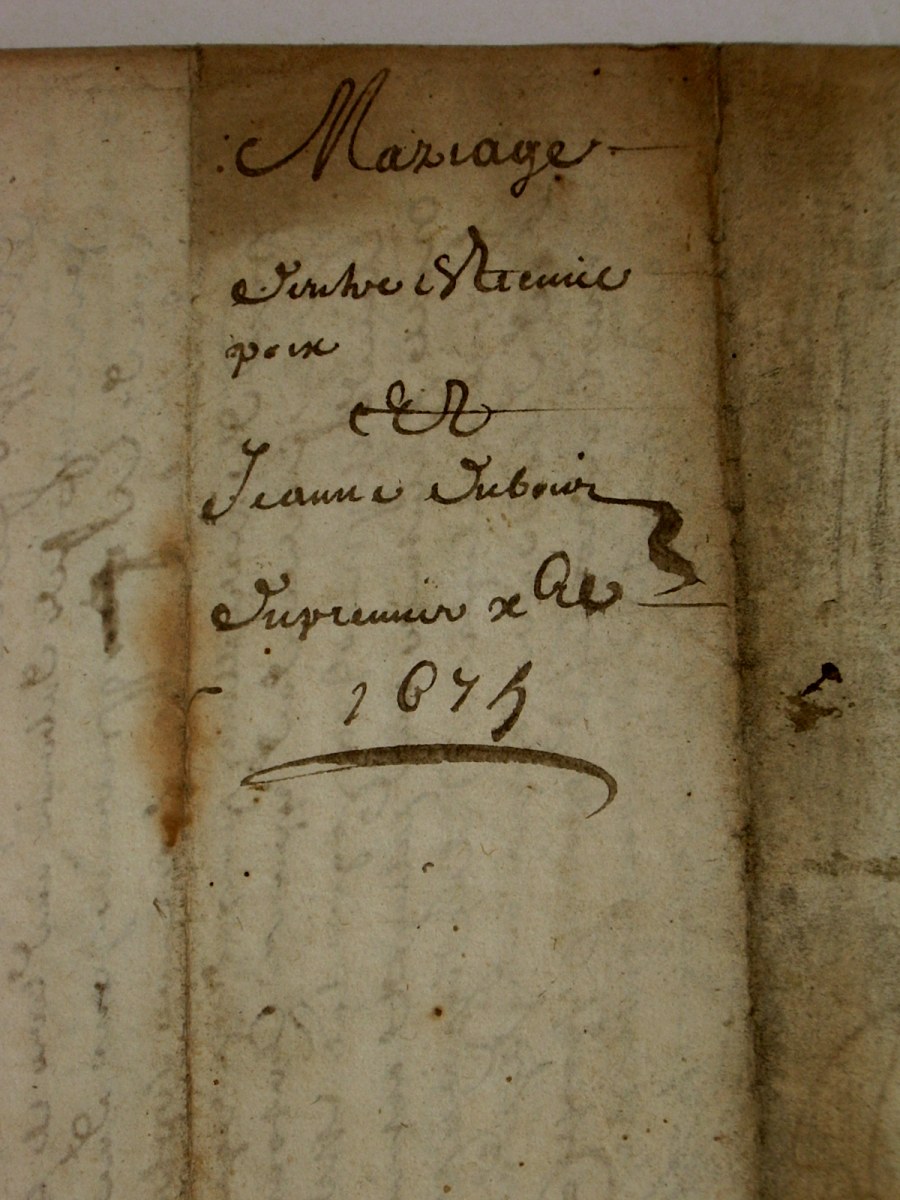 Mariage
Entre Etienne
poix
Et
Jeanne Dubois
Du premier xbre
1675